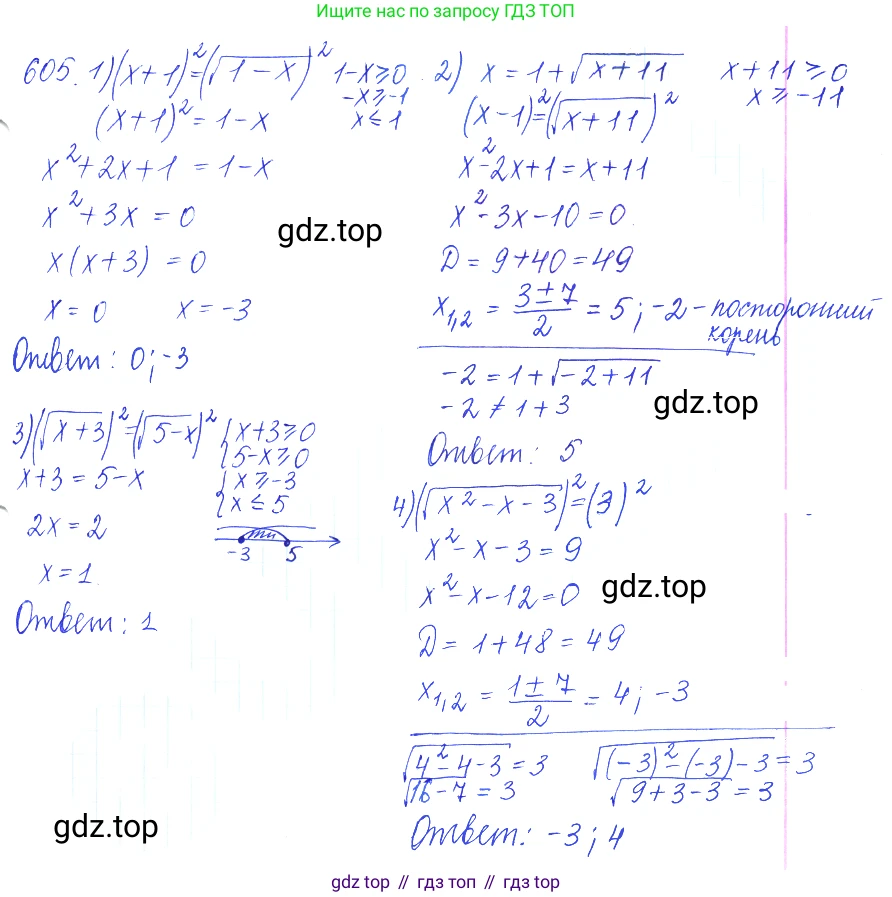 Ищите нас по запросу ГДЗ ТОП
605. 1) (x+1)²=(√(1-x))² 1-x≥0
-x≥-1
(x+1)² = 1-x x≤1
x²+2x+1 = 1-x
x²+3x = 0
x(x+3) = 0
x = 0 x = -3
Ответ: 0; -3
2) x = 1+√(x+11) x+11≥0
x≥-11
(x-1)²=(√(x+11))²
x²-2x+1=x+11
x²-3x-10=0
D = 9+40=49
x₁,₂ = (3±7)/2 = 5; -2 - посторонний
корень
-2 = 1+√(-2+11)
-2 ≠ 1+3
Ответ: 5
3) (√(x+3))²=(√(5-x))² { x+3≥0
5-x≥0
x+3 = 5-x { x≥-3
x≤5
2x = 2
-3 5
x = 1.
Ответ: 1
4) (√(x²-x-3))²=(3)²
x²-x-3=9
x²-x-12=0
D = 1+48=49
x₁,₂ = (1±7)/2 = 4; -3
√(4²-4-3)=3 √((-3)²-(-3)-3)=3
√(16-7)=3 √(9+3-3)=3
Ответ: -3; 4
gdz.top
gdz.top
gdz.top
gdz.top
gdz top // гдз топ // гдз top